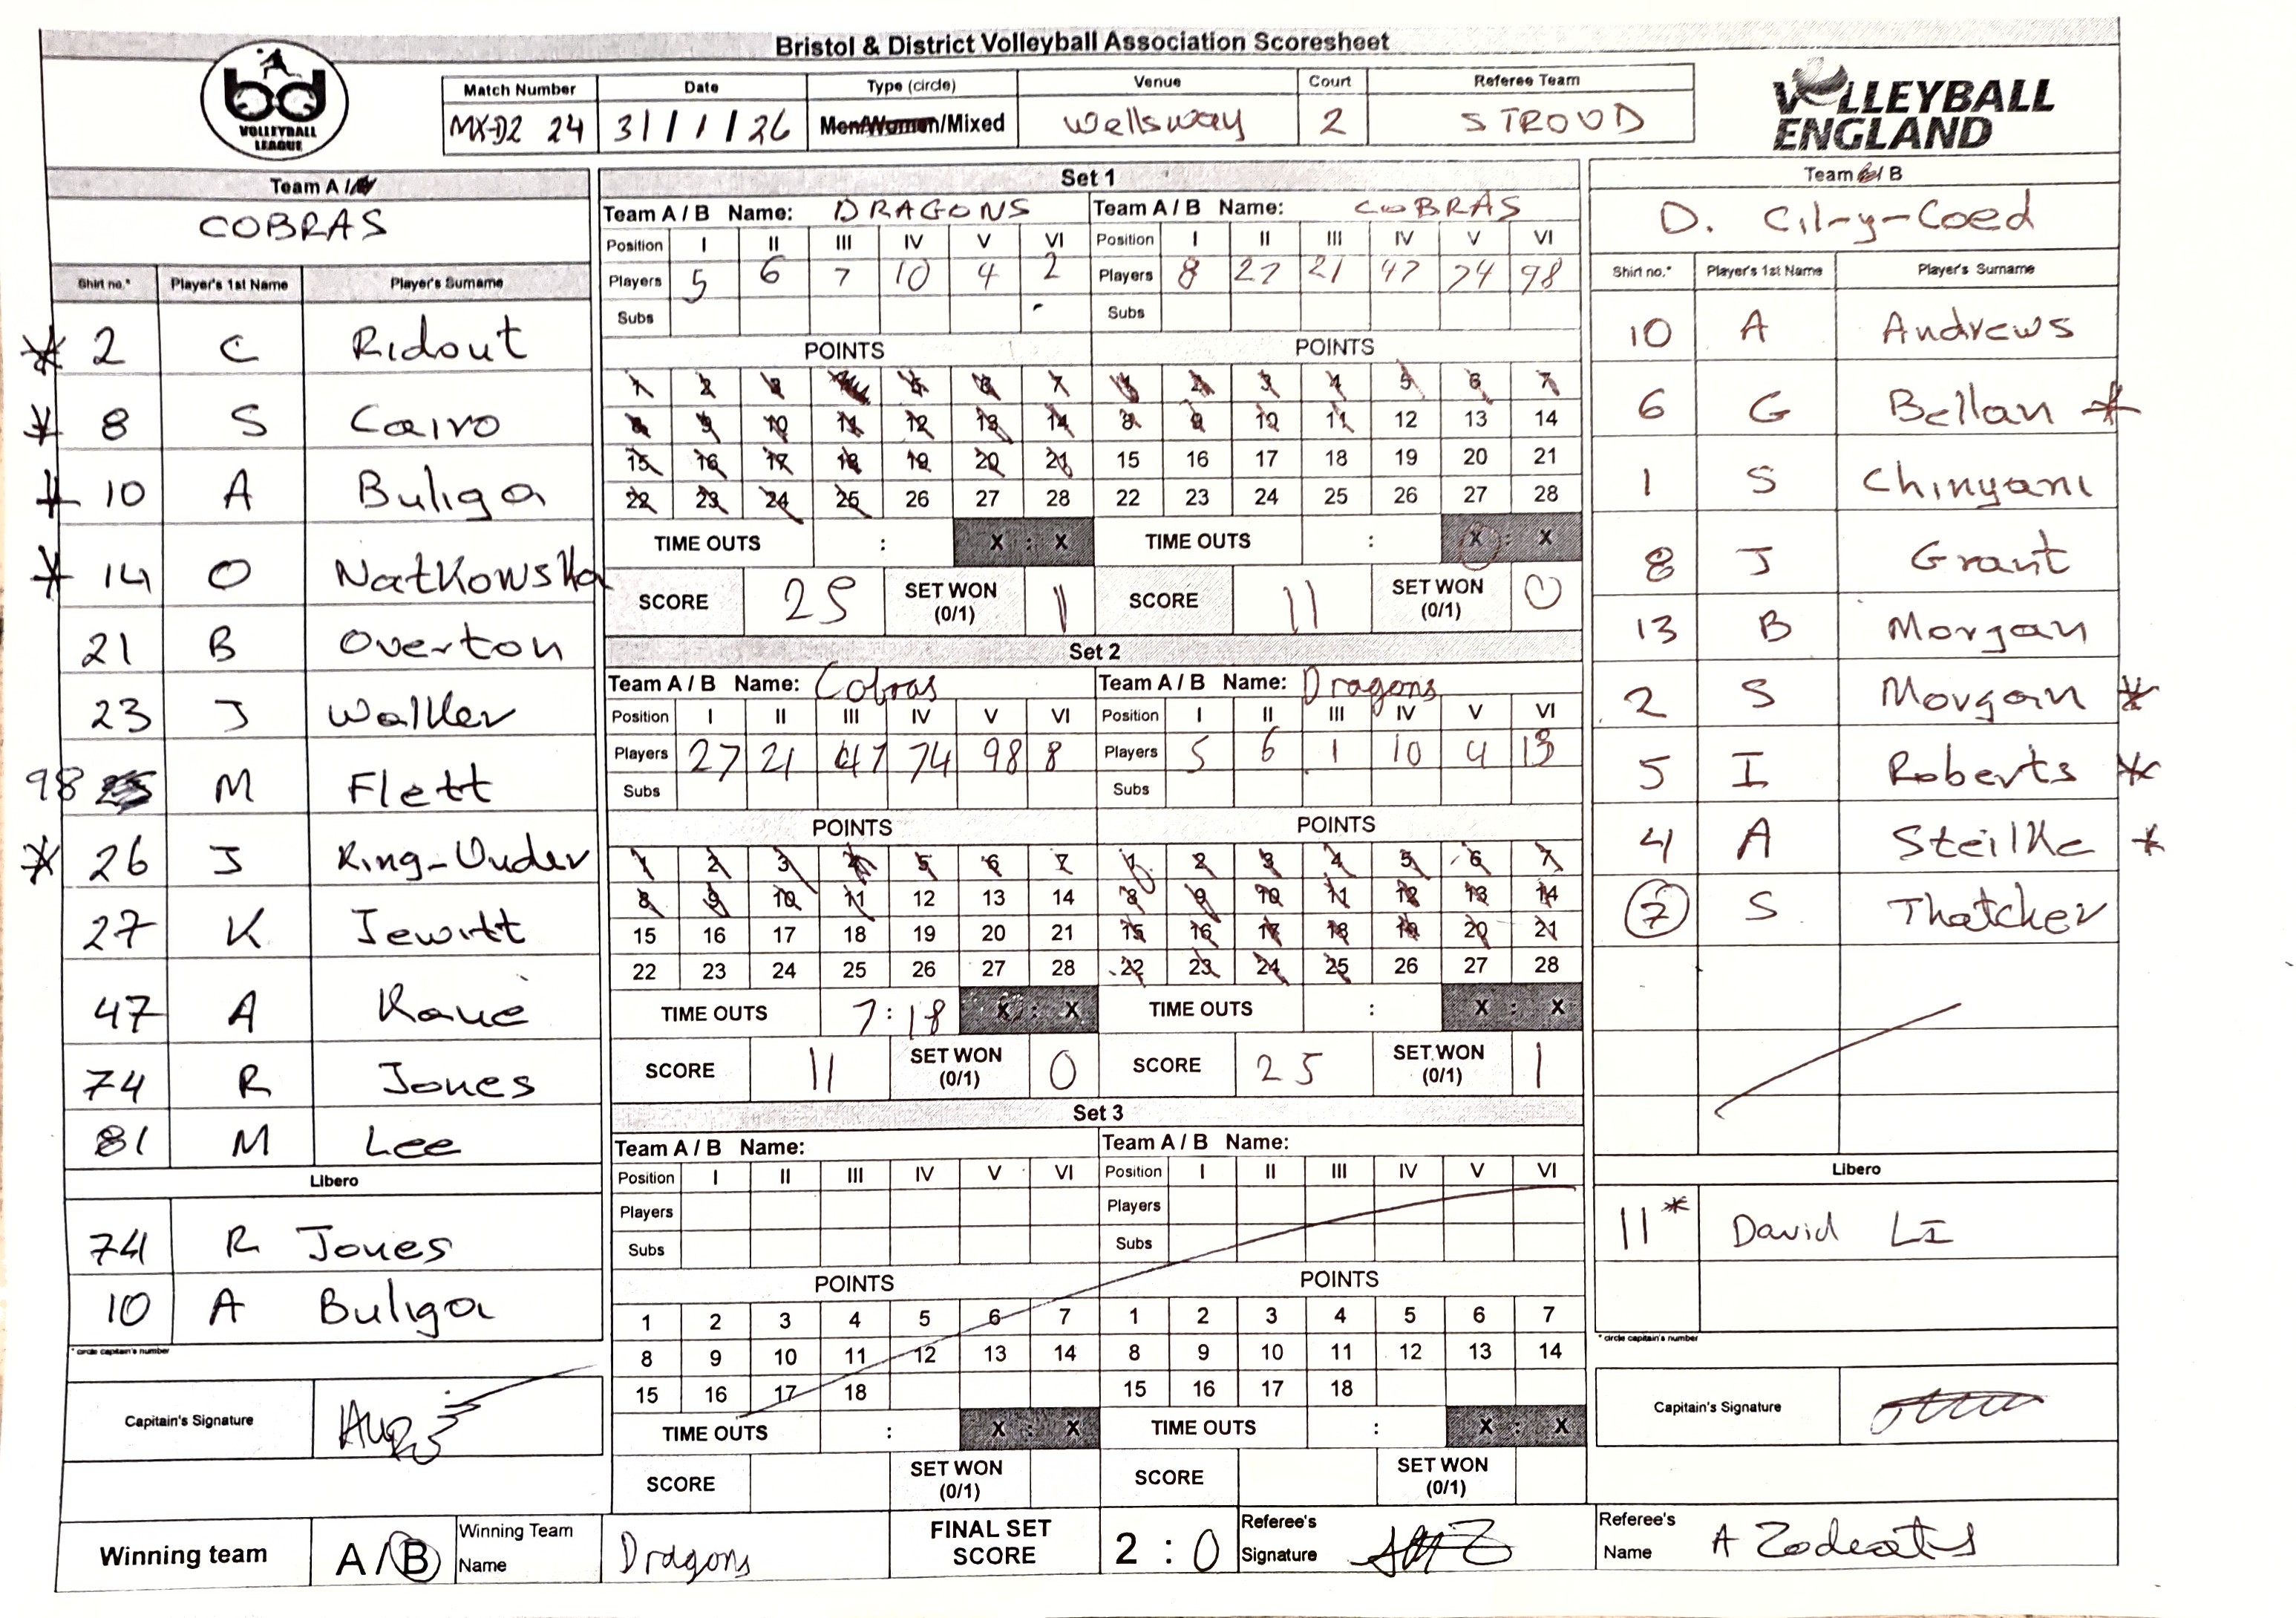 Bristol & District Volleyball Association Scoresheet
bd VOLLEYBALL LEAGUE
Match Number Date Type (circle) Venue Court Referee Team
MX-D2 24 31/1/26 Men/Women/Mixed Wellsway 2 STROUD
VOLLEYBALL ENGLAND
Team A /
COBRAS
Shirt no.* Player's 1st Name Player's Surname
* 2 C Ridout
* 8 S Cairo
* 10 A Buliga
* 14 O Natkowska
21 B Overton
23 J Walker
98 M Flett
* 26 J Ring-Onder
27 K Jewitt
47 A Kane
74 R Jones
81 M Lee
Libero
74 R Jones
10 A Buliga
* circle captain's number
Capitain's Signature
Set 1
Team A / B Name: DRAGONS Team A / B Name: COBRAS
Position I II III IV V VI Position I II III IV V VI
Players 5 6 7 10 4 2 Players 8 27 21 47 74 98
Subs Subs
POINTS POINTS
1 2 3 4 5 6 7 1 2 3 4 5 6 7
8 9 10 11 12 13 14 8 9 10 11 12 13 14
15 16 17 18 19 20 21 15 16 17 18 19 20 21
22 23 24 25 26 27 28 22 23 24 25 26 27 28
TIME OUTS : X : X TIME OUTS : X : X
SCORE 25 SET WON (0/1) 1 SCORE 11 SET WON (0/1) 0
Set 2
Team A / B Name: Cobras Team A / B Name: Dragons
Position I II III IV V VI Position I II III IV V VI
Players 27 21 47 74 98 8 Players 5 6 1 10 4 13
Subs Subs
POINTS POINTS
1 2 3 4 5 6 7 1 2 3 4 5 6 7
8 9 10 11 12 13 14 8 9 10 11 12 13 14
15 16 17 18 19 20 21 15 16 17 18 19 20 21
22 23 24 25 26 27 28 22 23 24 25 26 27 28
TIME OUTS 7:18 X : X TIME OUTS : X : X
SCORE 11 SET WON (0/1) 0 SCORE 25 SET WON (0/1) 1
Set 3
Team A / B Name: Team A / B Name:
Position I II III IV V VI Position I II III IV V VI
Players Players
Subs Subs
POINTS POINTS
1 2 3 4 5 6 7 1 2 3 4 5 6 7
8 9 10 11 12 13 14 8 9 10 11 12 13 14
15 16 17 18 15 16 17 18
TIME OUTS : X : X TIME OUTS : X : X
SCORE SET WON (0/1) SCORE SET WON (0/1)
Team / B
D. Cil-y-Coed
Shirt no.* Player's 1st Name Player's Surname
10 A Andrews
6 G Bellan *
1 S Chinyani
8 J Grant
13 B Morgan
2 S Morgan *
5 I Roberts *
4 A Steilke *
7 S Thatcher
Libero
11* David LI
* circle captain's number
Capitain's Signature
Winning team A / B Winning Team Name Dragons FINAL SET SCORE 2 : 0 Referee's Signature Referee's Name A